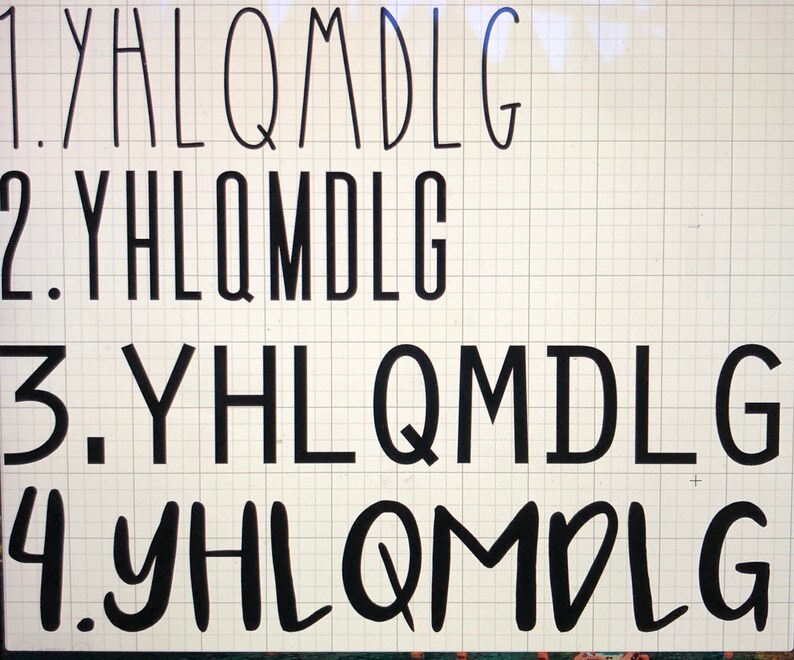 1.YHLQMDLG
2.YHLQMDLG
3.YHLQMDLG
4.YHLQMDLG